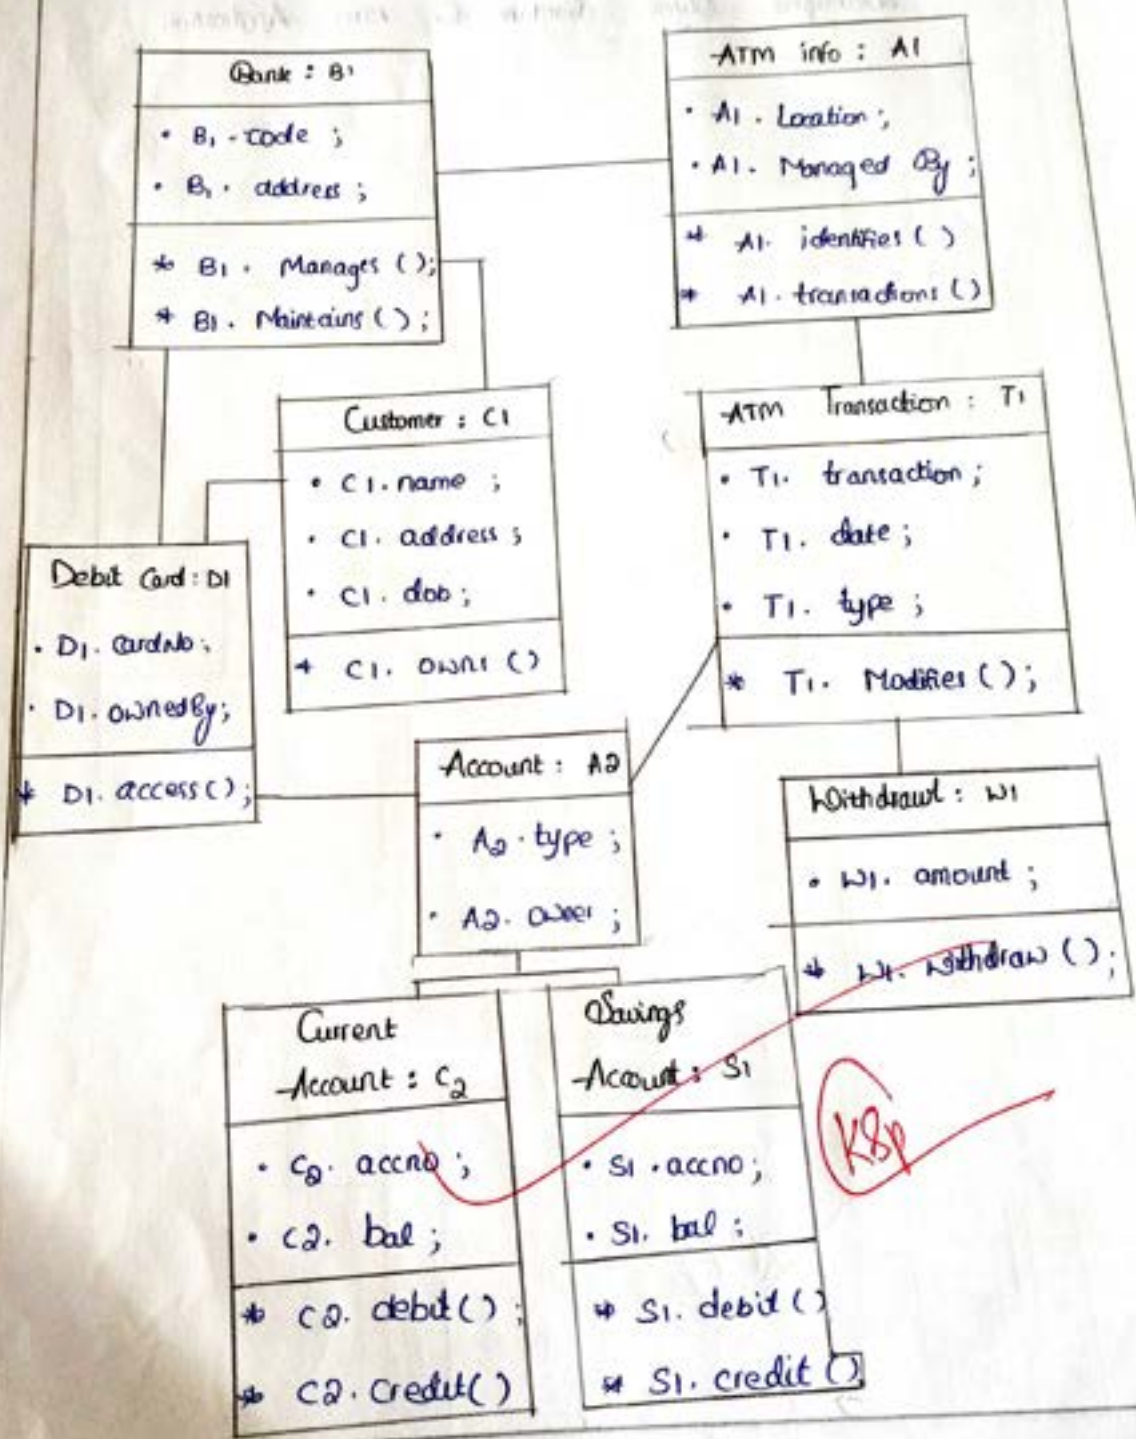 Bank : B1
• B1 . code ;
• B1 . address ;
* B1 . Manages ( );
* B1 . Maintains ( );
ATM info : A1
• A1 . Location ;
• A1 . Managed By ;
* A1. identifies ( )
* A1. transactions ( )
Customer : C1
• C1. name ;
• C1. address ;
• C1. dob ;
* C1. owns ( )
ATM Transaction : T1
• T1. transaction ;
• T1. date ;
• T1. type ;
* T1. Modifies ( );
Debit Card : D1
• D1. CardNo ;
• D1. ownedBy;
* D1. access( );
Account : A2
• A2 . type ;
• A2. owner ;
Withdrawl : W1
• W1. amount ;
* W1. withdraw ( );
Current
Account : C2
• C2. accno ;
• C2. bal ;
* C2. debit( ) ;
* C2. credit( )
Savings
Account : S1
• S1 . accno ;
• S1. bal ;
* S1. debit ( )
* S1. credit ( )